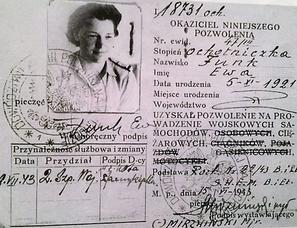 18731 och.
OKAZICIEL NINIEJSZEGO
POZWOLENIA
Nr. ewid.
Stopień ochotniczka
Nazwisko Funk
Imię Ewa
Data urodzenia 5-XI-1921
Miejsce urodzenia
Województwo
UZYSKAŁ POZWOLENIE NA PRO-
WADZENIE WOJSKOWYCH SA-
MOCHODÓW, OSOBOWYCH, CIĘ-
ŻAROWYCH, CIĄGNIKÓW, POJA-
ZDÓW GĄSIENICOWYCH,
MOTOCYKLI
Podstawa
M. p. dnia 15/VII-1943
Podpis wystawiającego
(-) MIRZYŃSKI Mjr.
pieczęć
Własnoręczny podpis
Przynależność służbowa i zmiany
Data Przydział Podpis D-cy
VII.43 2.